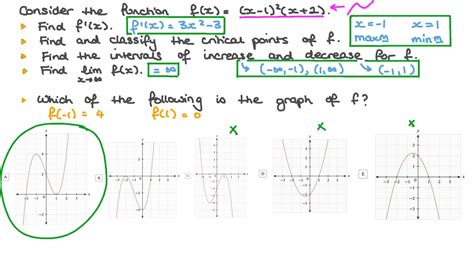 Consider the function f(x) = (x-1)²(x+2)
▸ Find f'(x). f'(x) = 3x²-3 x=-1 x=1
▸ Find and classify the critical points of f. maxm minm
▸ Find the intervals of increase and decrease for f.
▸ Find lim x→∞ f(x). = ∞ ↳ (-∞,-1), (1,∞) ↘ (-1,1)
▸ Which of the following is the graph of f?
f(-1) = 4 f(1) = 0
x x x
A B C D E